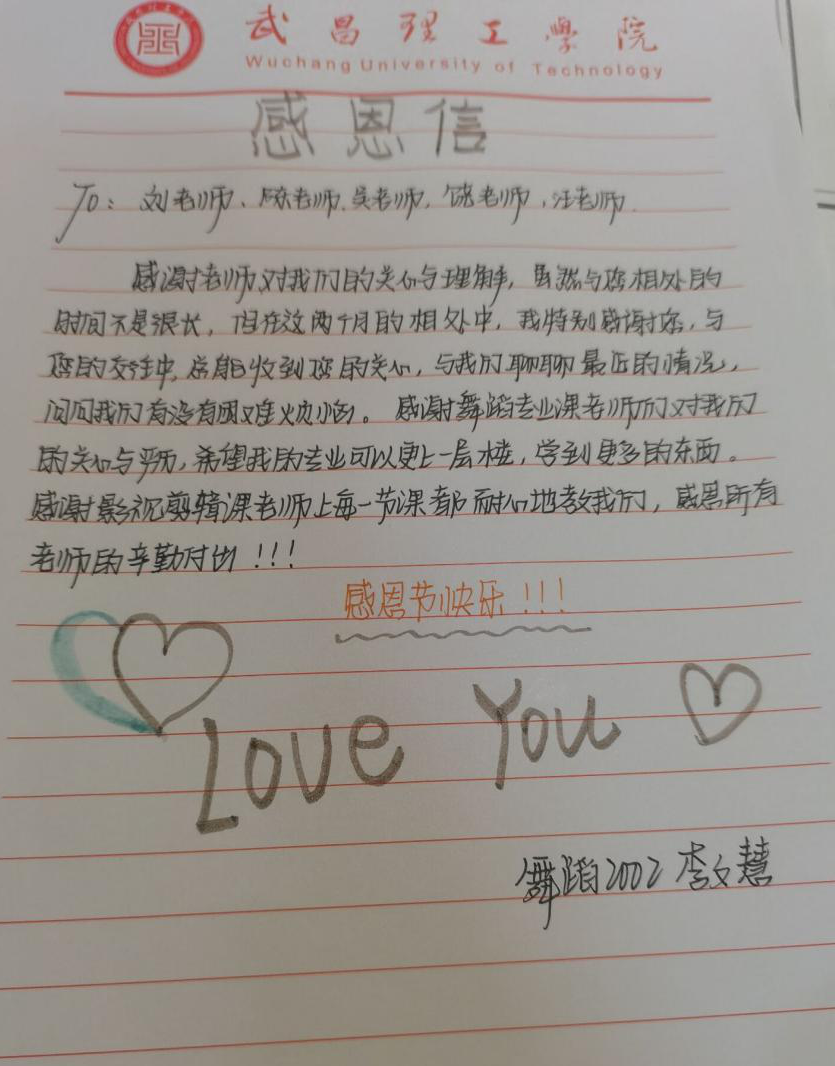 武昌理工学院
Wuchang University of Technology
感恩信
To：刘老师、陈老师、吴老师，饶老师，汪老师
感谢老师对我们的关心与理解，虽然与您相处的
时间不是很长，但在这两个月的相处中，我特别感谢您，与
您的交往中，总能收到您的关心，与我们聊聊最近的情况，
问问我们有没有困难烦恼。感谢舞蹈专业课老师们对我们
的关心与严厉，希望我的专业可以更上一层楼，学到更多的东西。
感谢影视剪辑课老师上每一节课都耐心地教我们，感恩所有
老师的辛勤付出！！！
感恩节快乐！！！
Love You
舞蹈2002 李文慧